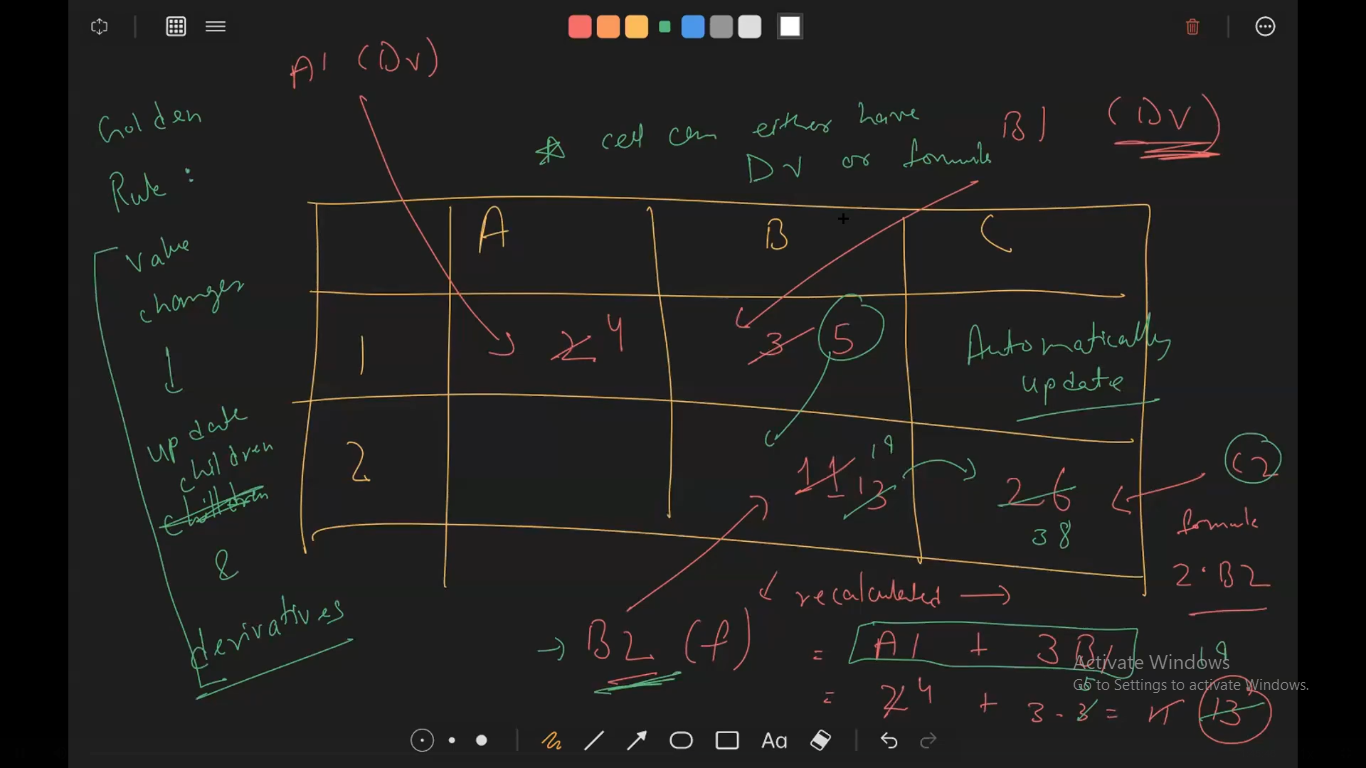 A1 (DV)
Golden
Rule:
value
changes
update
children
&
derivatives
* cell can either have
DV or formula
B1 (DV)
A B C
1 2 4 3 5
Automatically
update
2 11 13 19 26 38
C2
formula
2·B2
recalculated
B2 (f) = A1 + 3B1 19
= 2 4 + 3 · 3 5 = 11 13
Activate Windows
Go to Settings to activate Windows.
Aa